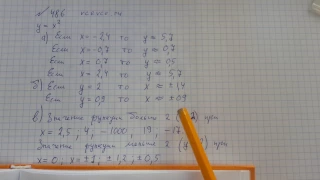 № 486
y = x²
а) Если x = -2,4 то y ≈ 5,7
Если x = -0,7 то y ≈ 0,7
Если x = 0,7 то y ≈ 0,5
Если x = 2,4 то y ≈ 5,7
б) Если y = 2 то x ≈ ±1,4
Если y = 0,9 то x ≈ ±0,9
в) Значения функции больше 2 при
x = 2,5; 4; -1000, 19, -17
Значения функции меньше 2 при
x = 0, x = ±1, ±1,2, ±0,5